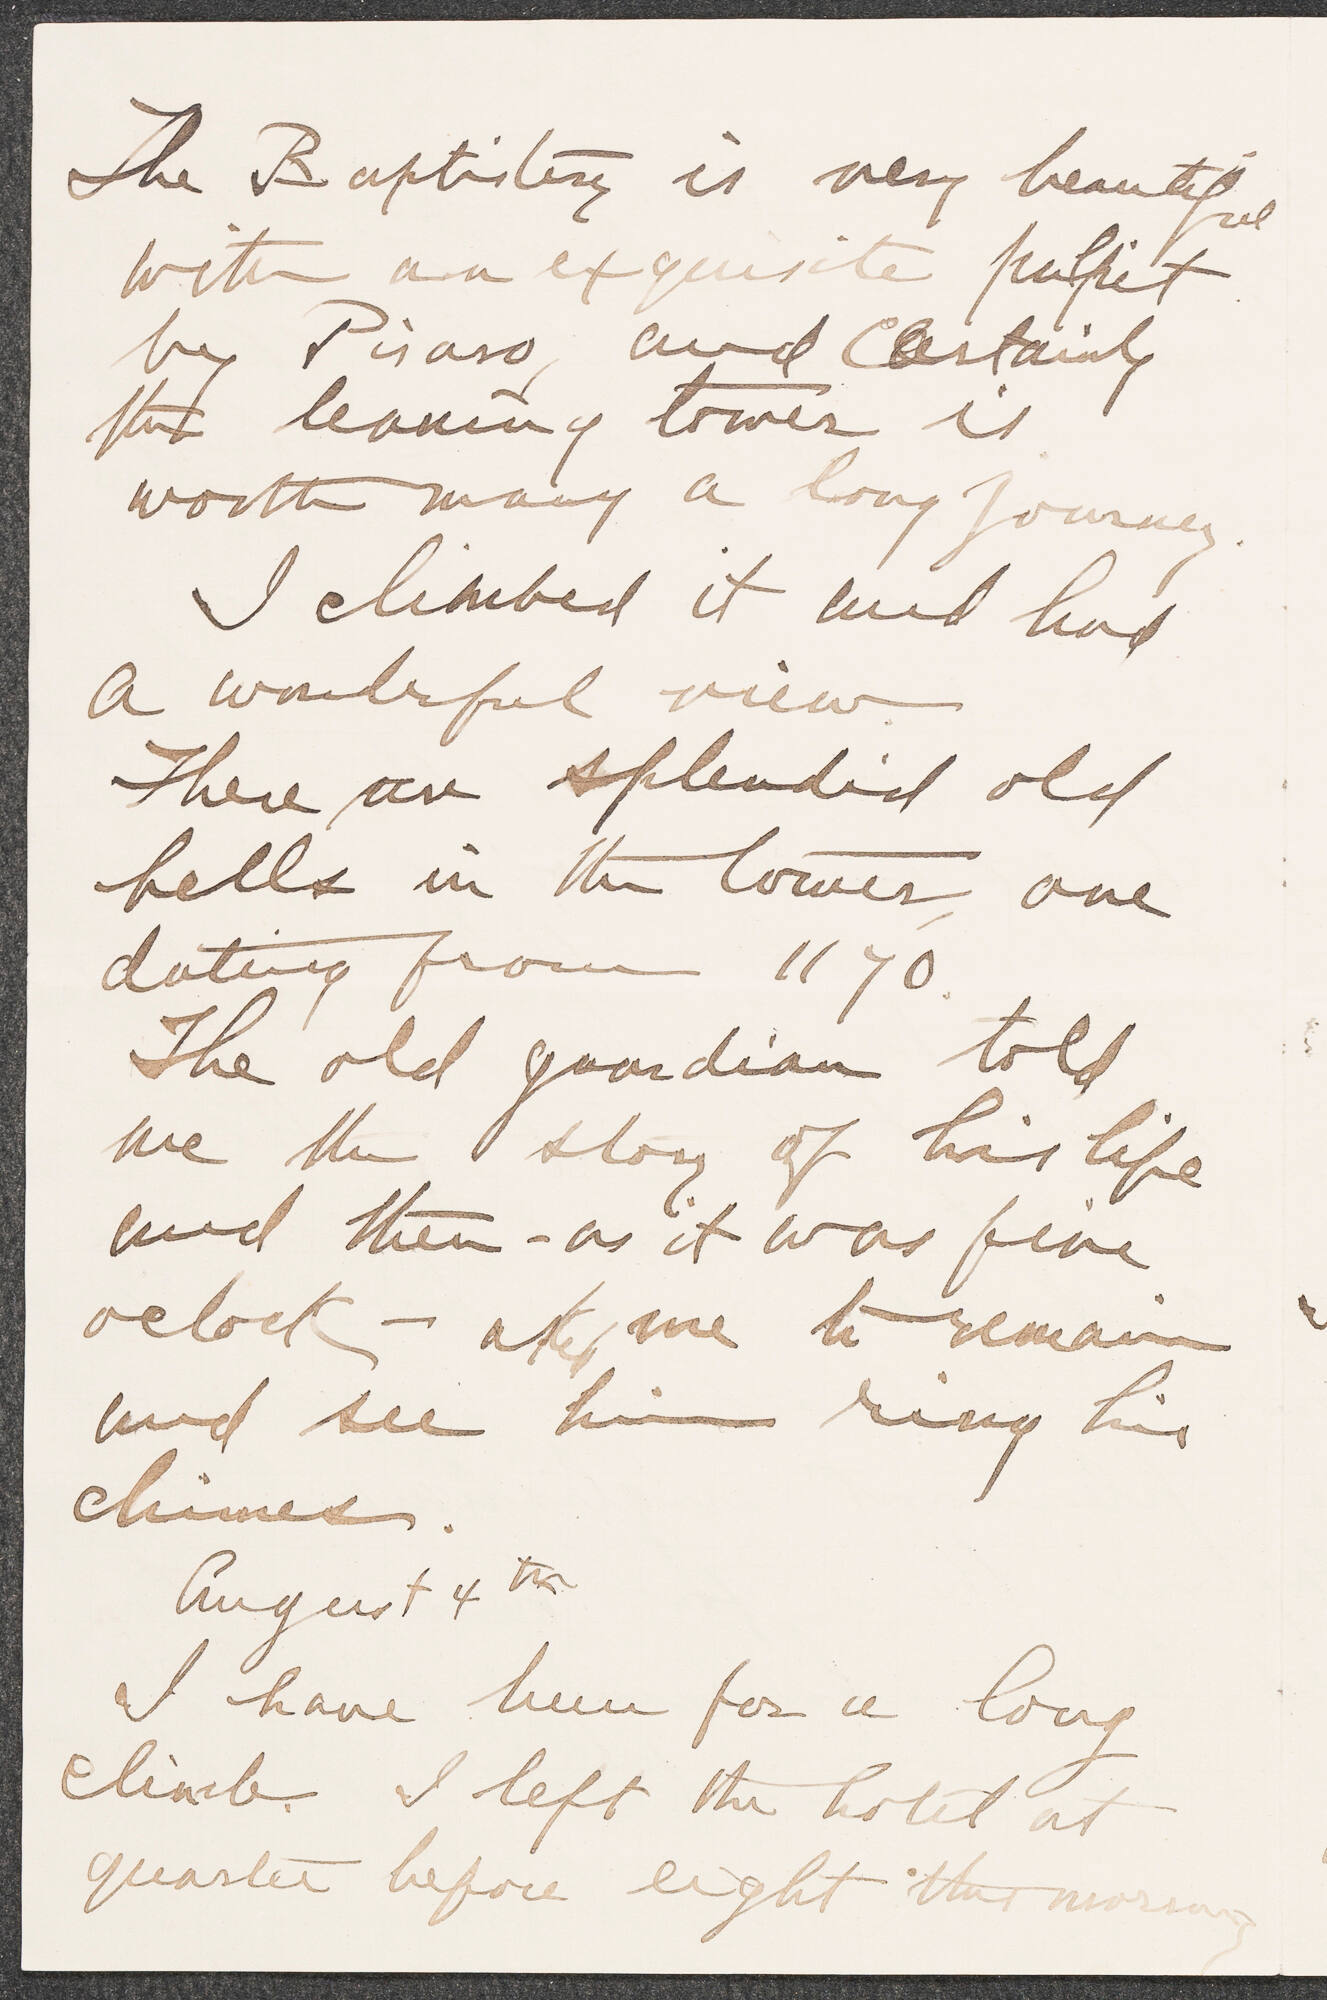 The Baptistery is very beautiful
with an exquisite pulpit
by Pisano, and certainly
the leaning tower is
worth many a long journey.
I climbed it and had
a wonderful view.
There are splendid old
bells in the tower, one
dating from 1170.
The old guardian told
me the story of his life
and then - as it was five
oclock - asked me to remain
and see him ring his
chimes.
August 4th
I have been for a long
climb. I left the hotel at
quarter before eight this morning